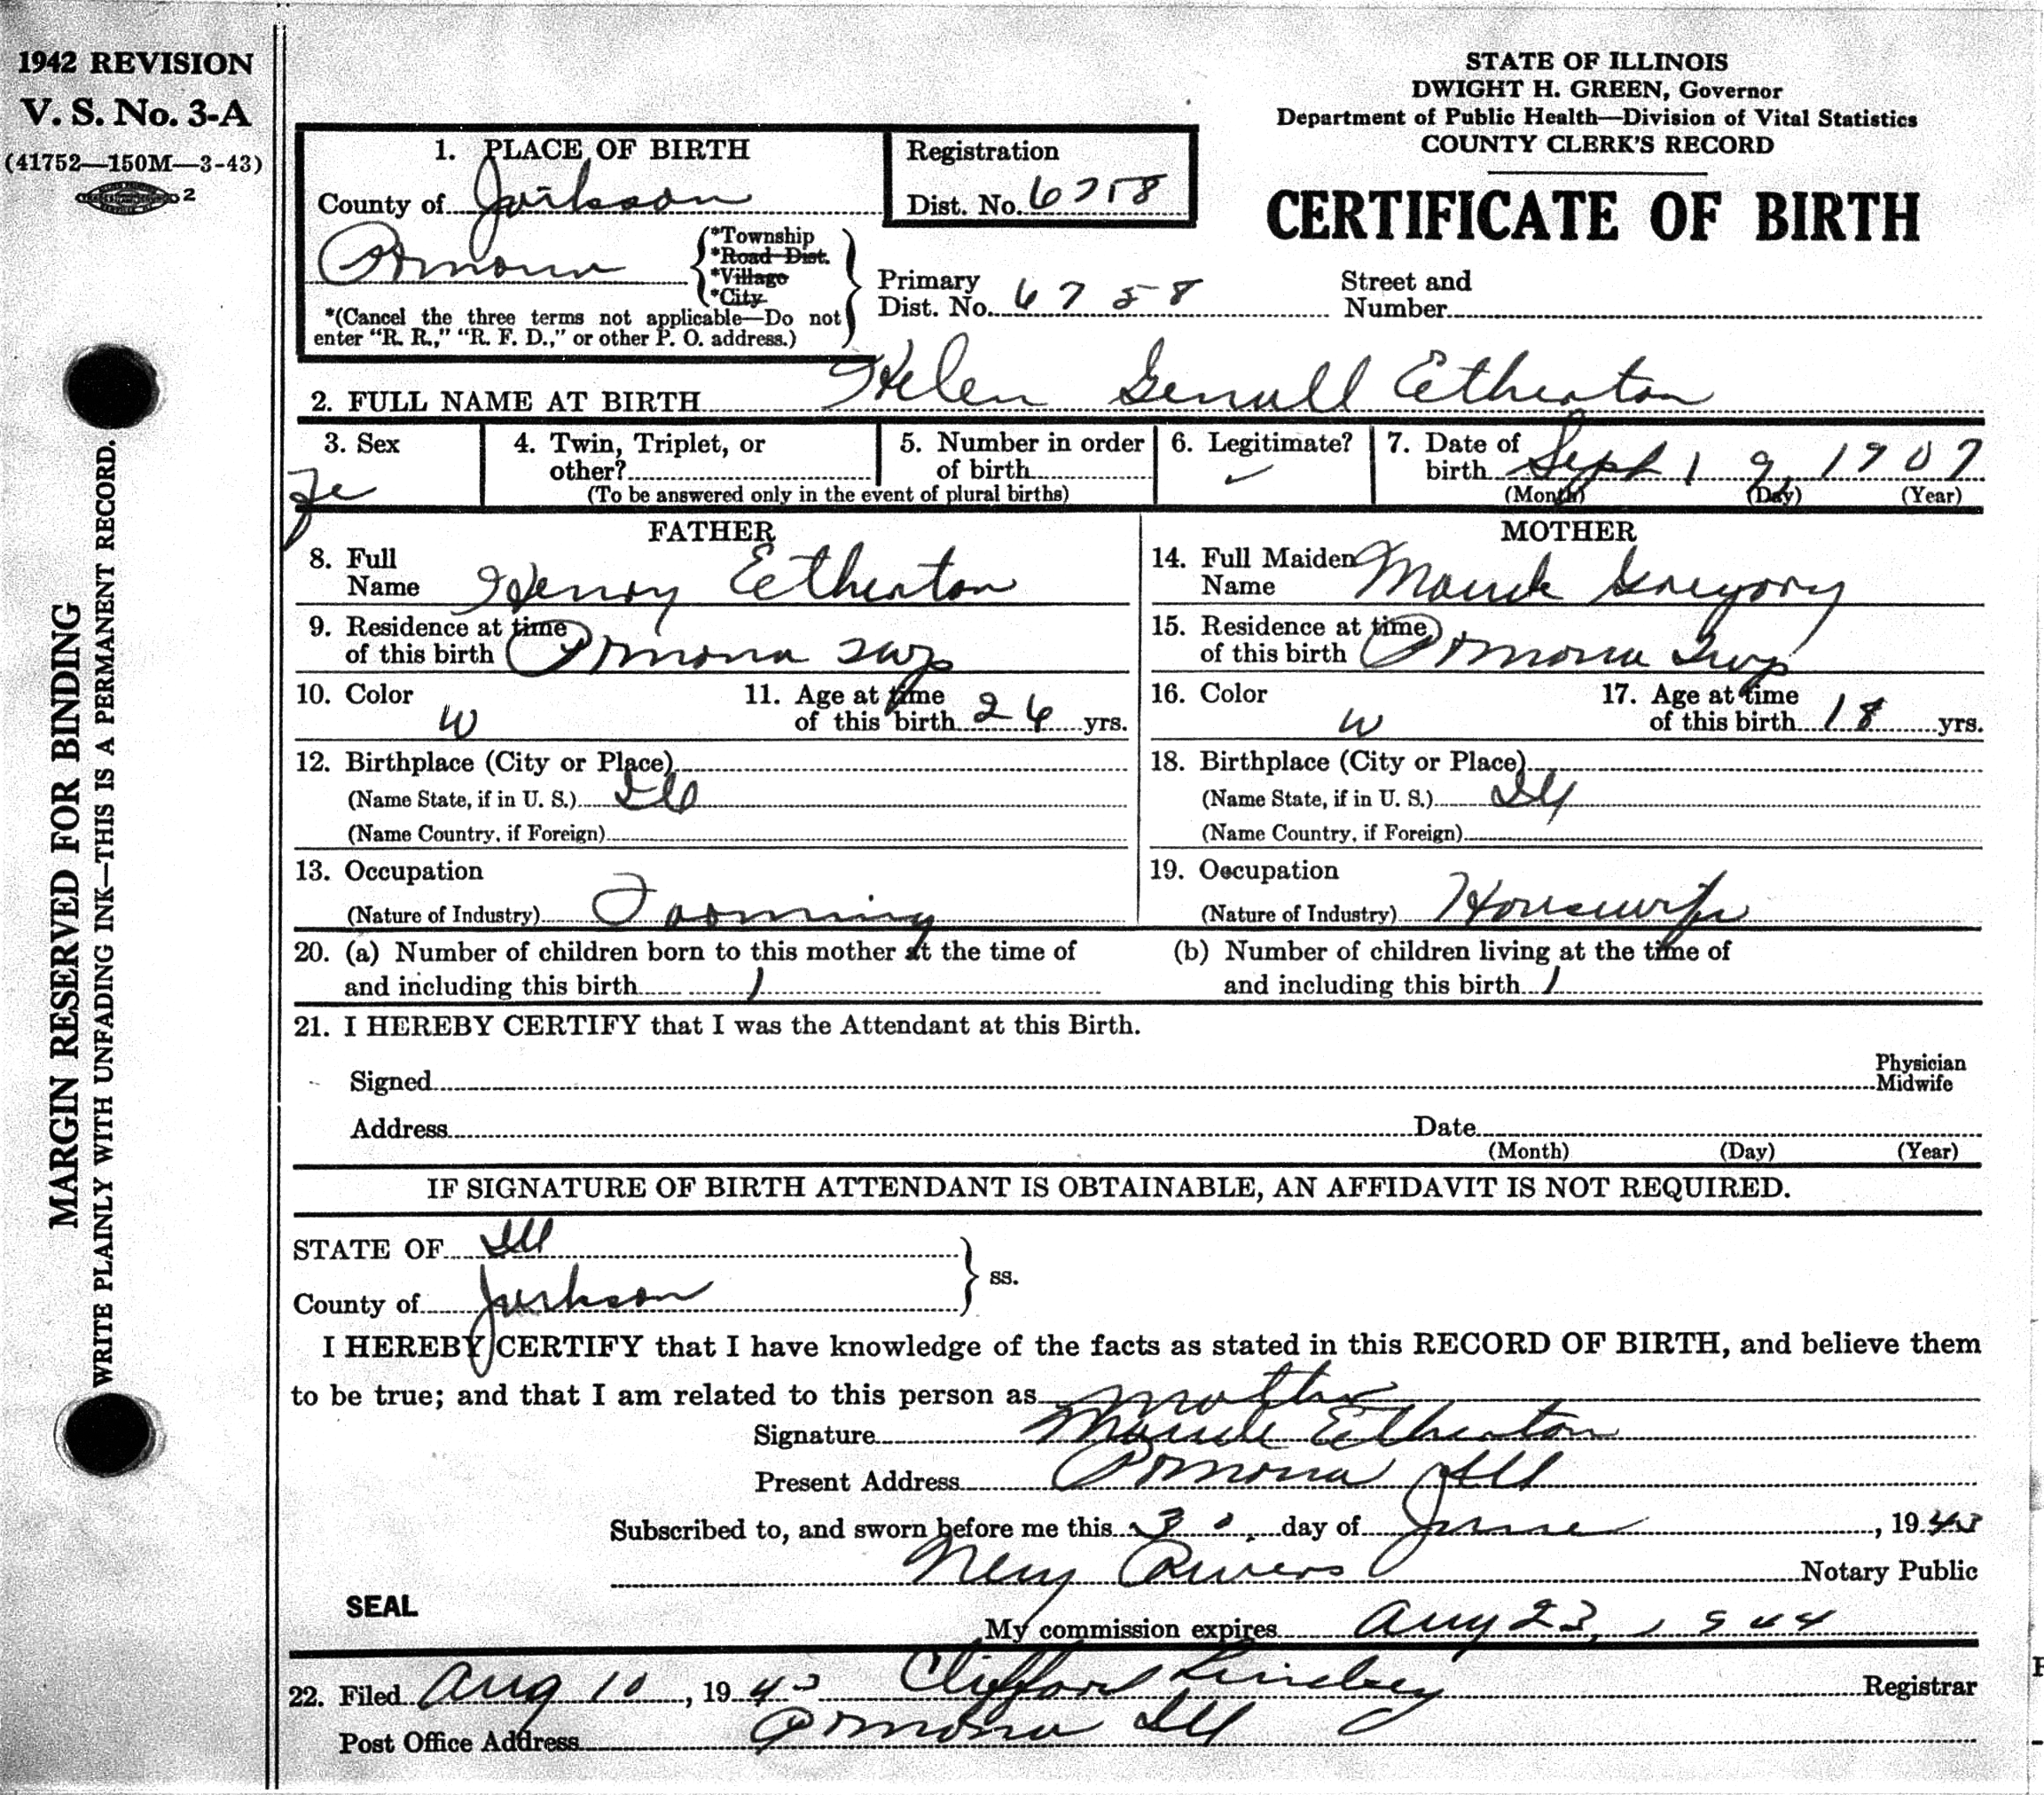 1942 REVISION
V. S. No. 3-A
(41752—150M—3-43)
2
MARGIN RESERVED FOR BINDING
WRITE PLAINLY WITH UNFADING INK—THIS IS A PERMANENT RECORD.
STATE OF ILLINOIS
DWIGHT H. GREEN, Governor
Department of Public Health—Division of Vital Statistics
COUNTY CLERK'S RECORD
CERTIFICATE OF BIRTH
1. PLACE OF BIRTH
County of Jackson
Registration
Dist. No. 6758
Pomona
*Township
*Road Dist.
*Village
*City
*(Cancel the three terms not applicable—Do not
enter "R. R.," "R. F. D.," or other P. O. address.)
Primary
Dist. No. 6758
Street and
Number
2. FULL NAME AT BIRTH Helen Etherton
3. Sex Fe
4. Twin, Triplet, or
other?
5. Number in order
of birth
(To be answered only in the event of plural births)
6. Legitimate? ✓
7. Date of
birth Sept 19, 1907
(Month) (Day) (Year)
FATHER
8. Full
Name Henry Etherton
9. Residence at time
of this birth Pomona Twp
10. Color W
11. Age at time
of this birth 24 yrs.
12. Birthplace (City or Place)
(Name State, if in U. S.) Ill
(Name Country, if Foreign)
13. Occupation
(Nature of Industry) Farming
MOTHER
14. Full Maiden
Name Maude Gregory
15. Residence at time
of this birth Pomona Twp
16. Color W
17. Age at time
of this birth 18 yrs.
18. Birthplace (City or Place)
(Name State, if in U. S.) Ill
(Name Country, if Foreign)
19. Occupation
(Nature of Industry) Housewife
20. (a) Number of children born to this mother at the time of
and including this birth 1
(b) Number of children living at the time of
and including this birth 1
21. I HEREBY CERTIFY that I was the Attendant at this Birth.
Signed
Physician
Midwife
Address Date
(Month) (Day) (Year)
IF SIGNATURE OF BIRTH ATTENDANT IS OBTAINABLE, AN AFFIDAVIT IS NOT REQUIRED.
STATE OF Ill
County of Jackson
ss.
I HEREBY CERTIFY that I have knowledge of the facts as stated in this RECORD OF BIRTH, and believe them
to be true; and that I am related to this person as mother
Signature Maude Etherton
Present Address Pomona Ill
Subscribed to, and sworn before me this 3 day of June, 1943
Notary Public
SEAL
My commission expires Aug 23, 1944
22. Filed Aug 10, 1943 Clifford Registrar
Post Office Address Pomona Ill